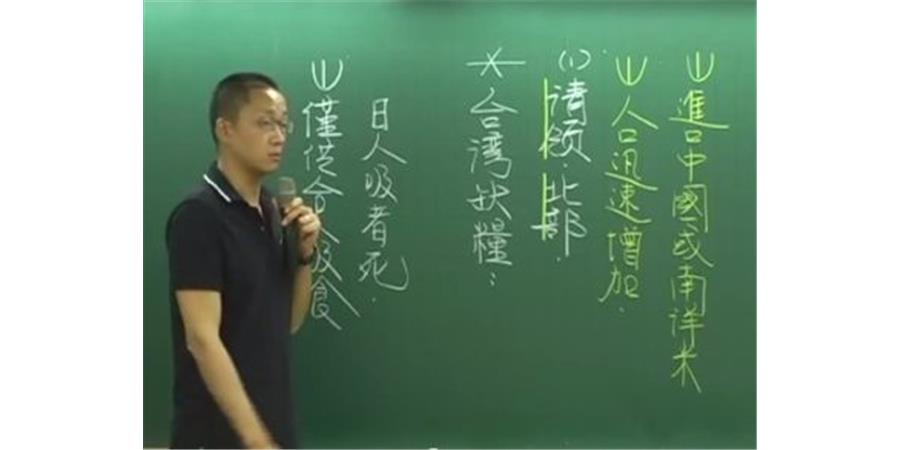 ↓進口中國或南洋米
↓人口迅速增加.
(1)清领.北部.
*台湾缺糧:
日人吸者死.
↓僅供台人吸食